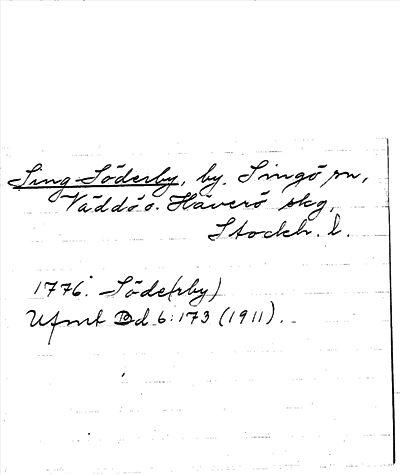 Sing-Söderby, by. Singö sn,
Väddö o. Häverö skg,
Stockh. l.
1776. Söde(rby)
Ufmt Dd 6:173 (1911).